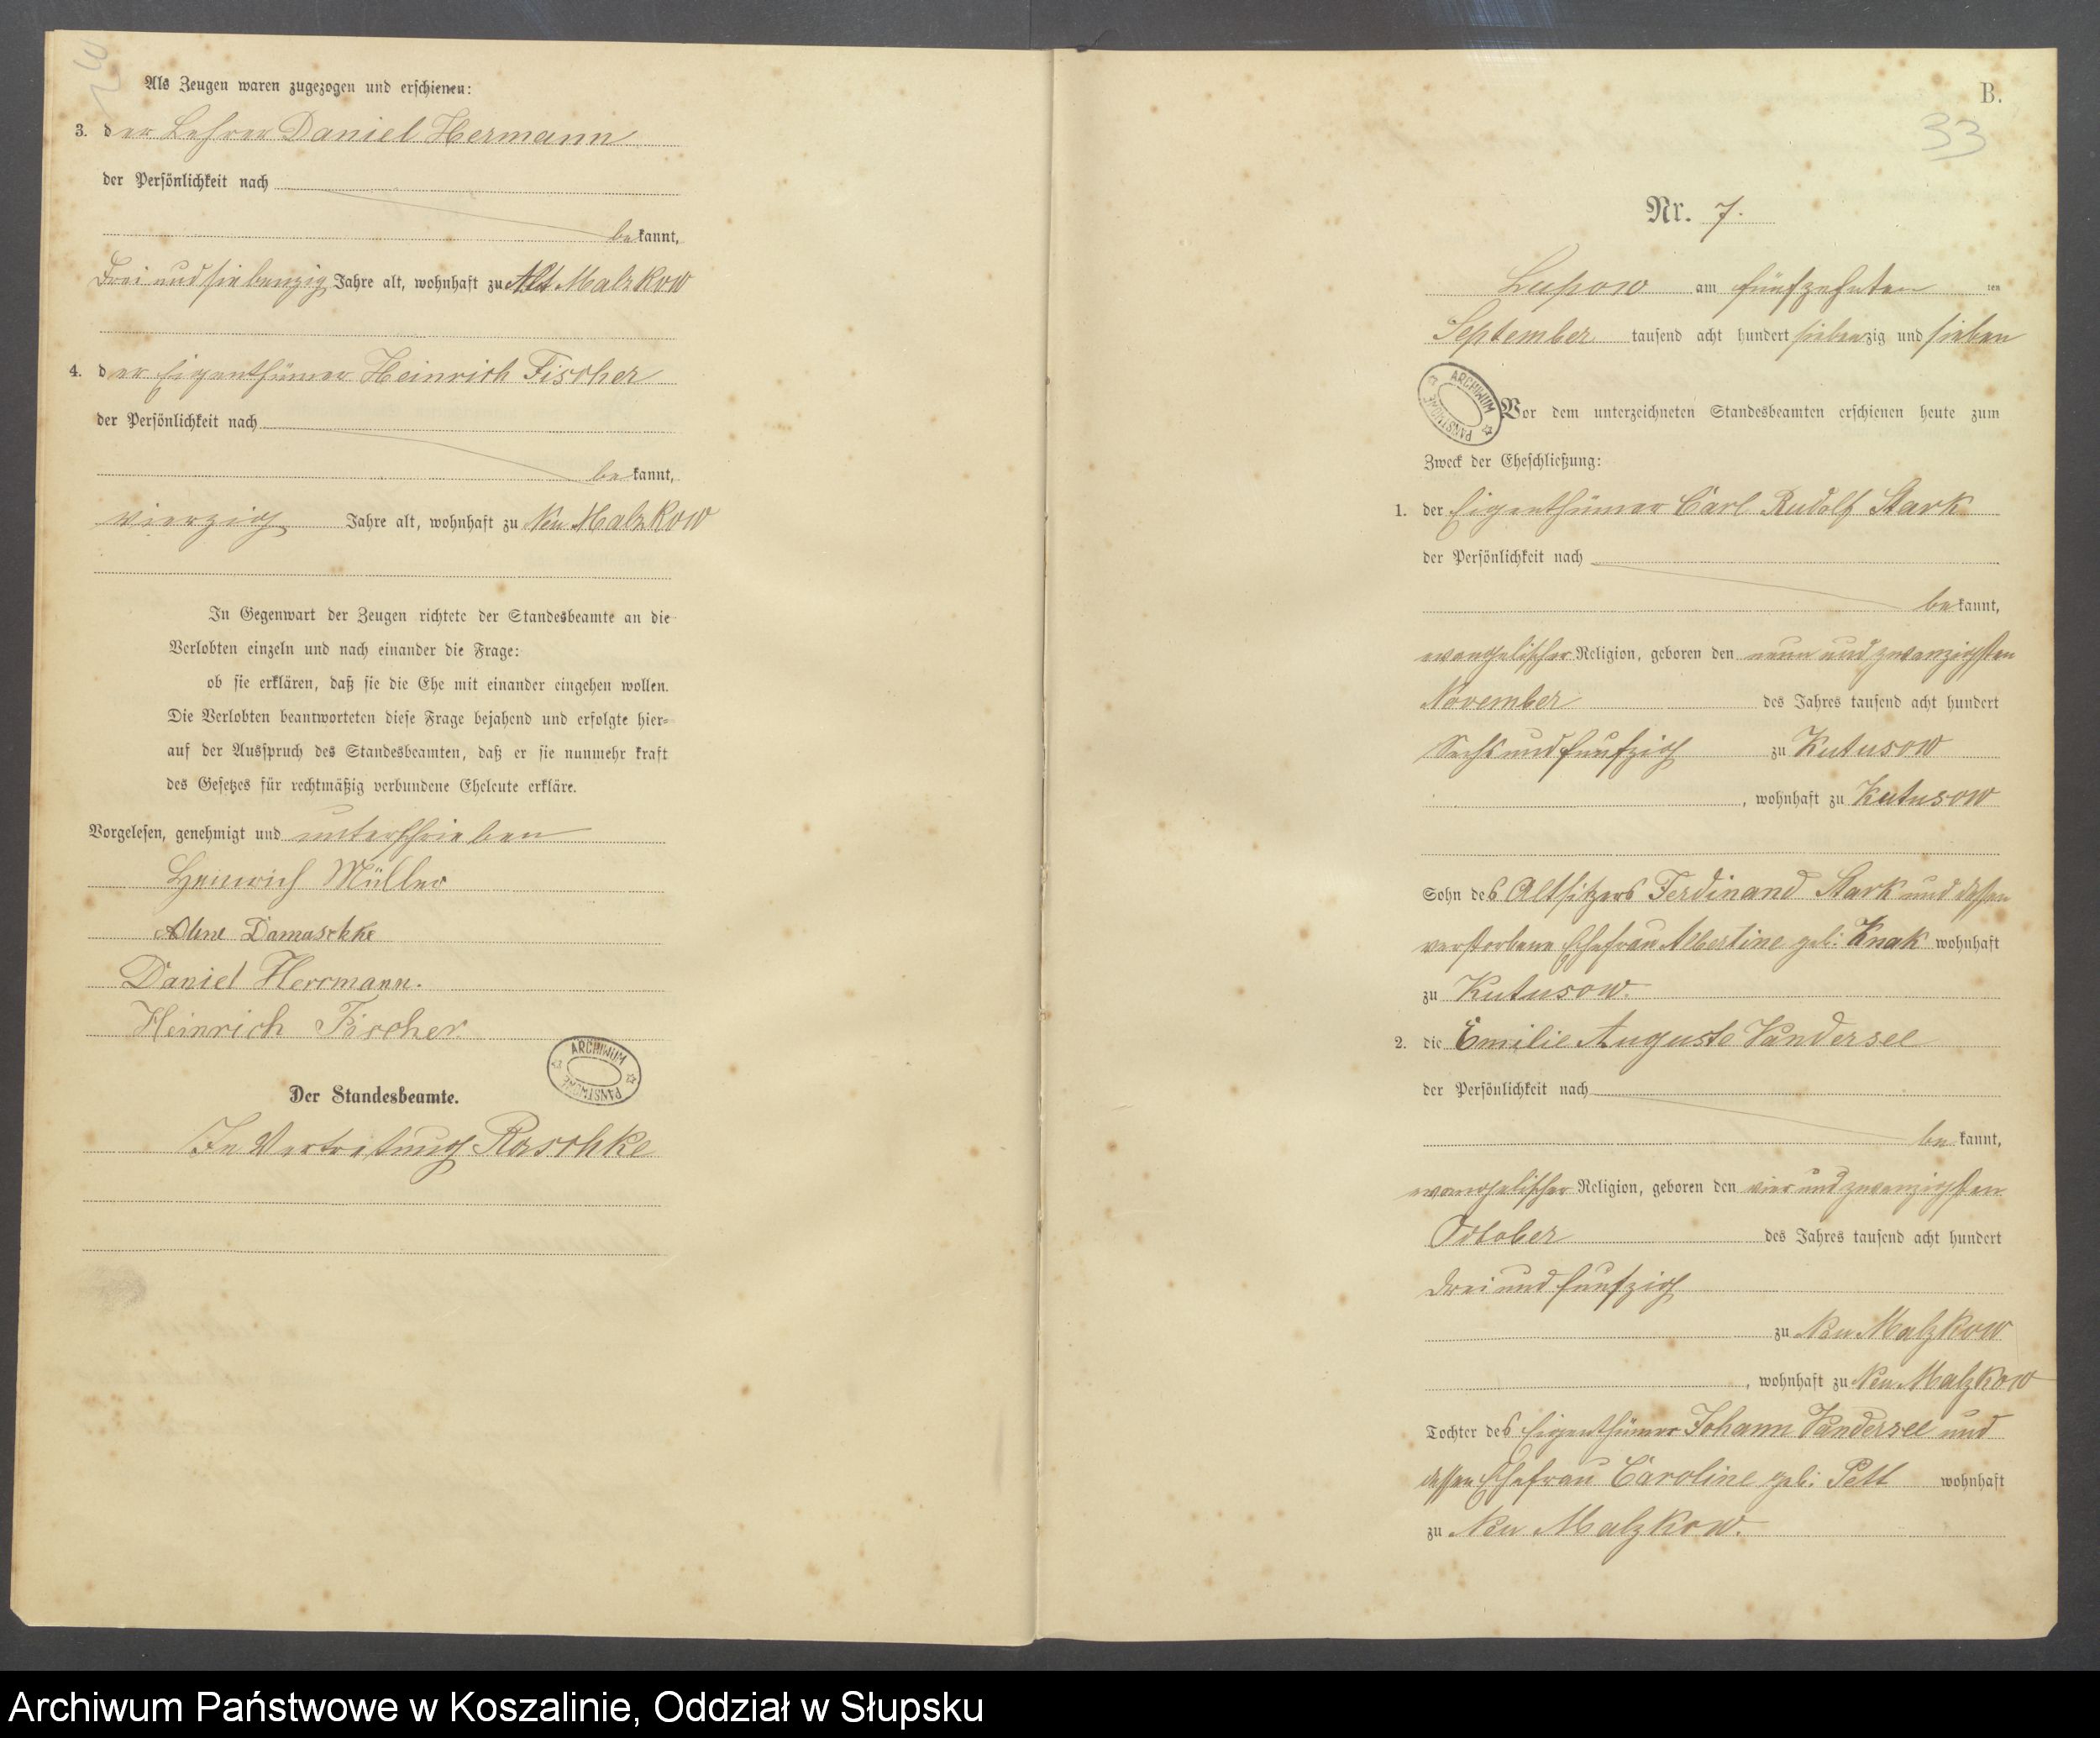 Als Zeugen waren zugezogen und erschienen:
3. der Lehrer Daniel Hermann
der Persönlichkeit nach
bekannt,
Drei und siebenzig Jahre alt, wohnhaft zu Alt Malzkow
4. der Eigenthümer Heinrich Fischer
der Persönlichkeit nach
bekannt,
vierzig Jahre alt, wohnhaft zu Neu Malzkow
In Gegenwart der Zeugen richtete der Standesbeamte an die
Verlobten einzeln und nach einander die Frage:
ob sie erklären, daß sie die Ehe mit einander eingehen wollen.
Die Verlobten beantworteten diese Frage bejahend und erfolgte hier-
auf der Ausspruch des Standesbeamten, daß er sie nunmehr kraft
des Gesetzes für rechtmäßig verbundene Eheleute erkläre.
Vorgelesen, genehmigt und unterschrieben
Heinrich Müller
Damaschke
Daniel Herrmann.
Heinrich Fischer.
ARCHIWUM PAŃSTWOWE
Der Standesbeamte.
In Vertretung Raschke
B.
33
Nr. 7.
Lupow am fünfzehnten ten
September tausend acht hundert siebenzig und sieben
ARCHIWUM PAŃSTWOWE
Vor dem unterzeichneten Standesbeamten erschienen heute zum
Zweck der Eheschließung:
1. der Eigenthümer Carl Rudolf Stark
der Persönlichkeit nach
bekannt,
evangelischer Religion, geboren den neun und zwanzigsten
November des Jahres tausend acht hundert
Sechs und fünfzig zu Kutusow
, wohnhaft zu Kutusow
Sohn des Altsitzers Ferdinand Stark und dessen
verstorbene Ehefrau Albertine geb: Knak wohnhaft
zu Kutusow.
2. die Emilie Auguste Vandersee
der Persönlichkeit nach
bekannt,
evangelischer Religion, geboren den vier und zwanzigsten
October des Jahres tausend acht hundert
drei und fünfzig
zu Neu Malzkow
, wohnhaft zu Neu Malzkow
Tochter des Eigenthümer Johann Vandersee und
dessen Ehefrau Caroline geb: Pett wohnhaft
zu Neu Malzkow.
Archiwum Państwowe w Koszalinie, Oddział w Słupsku